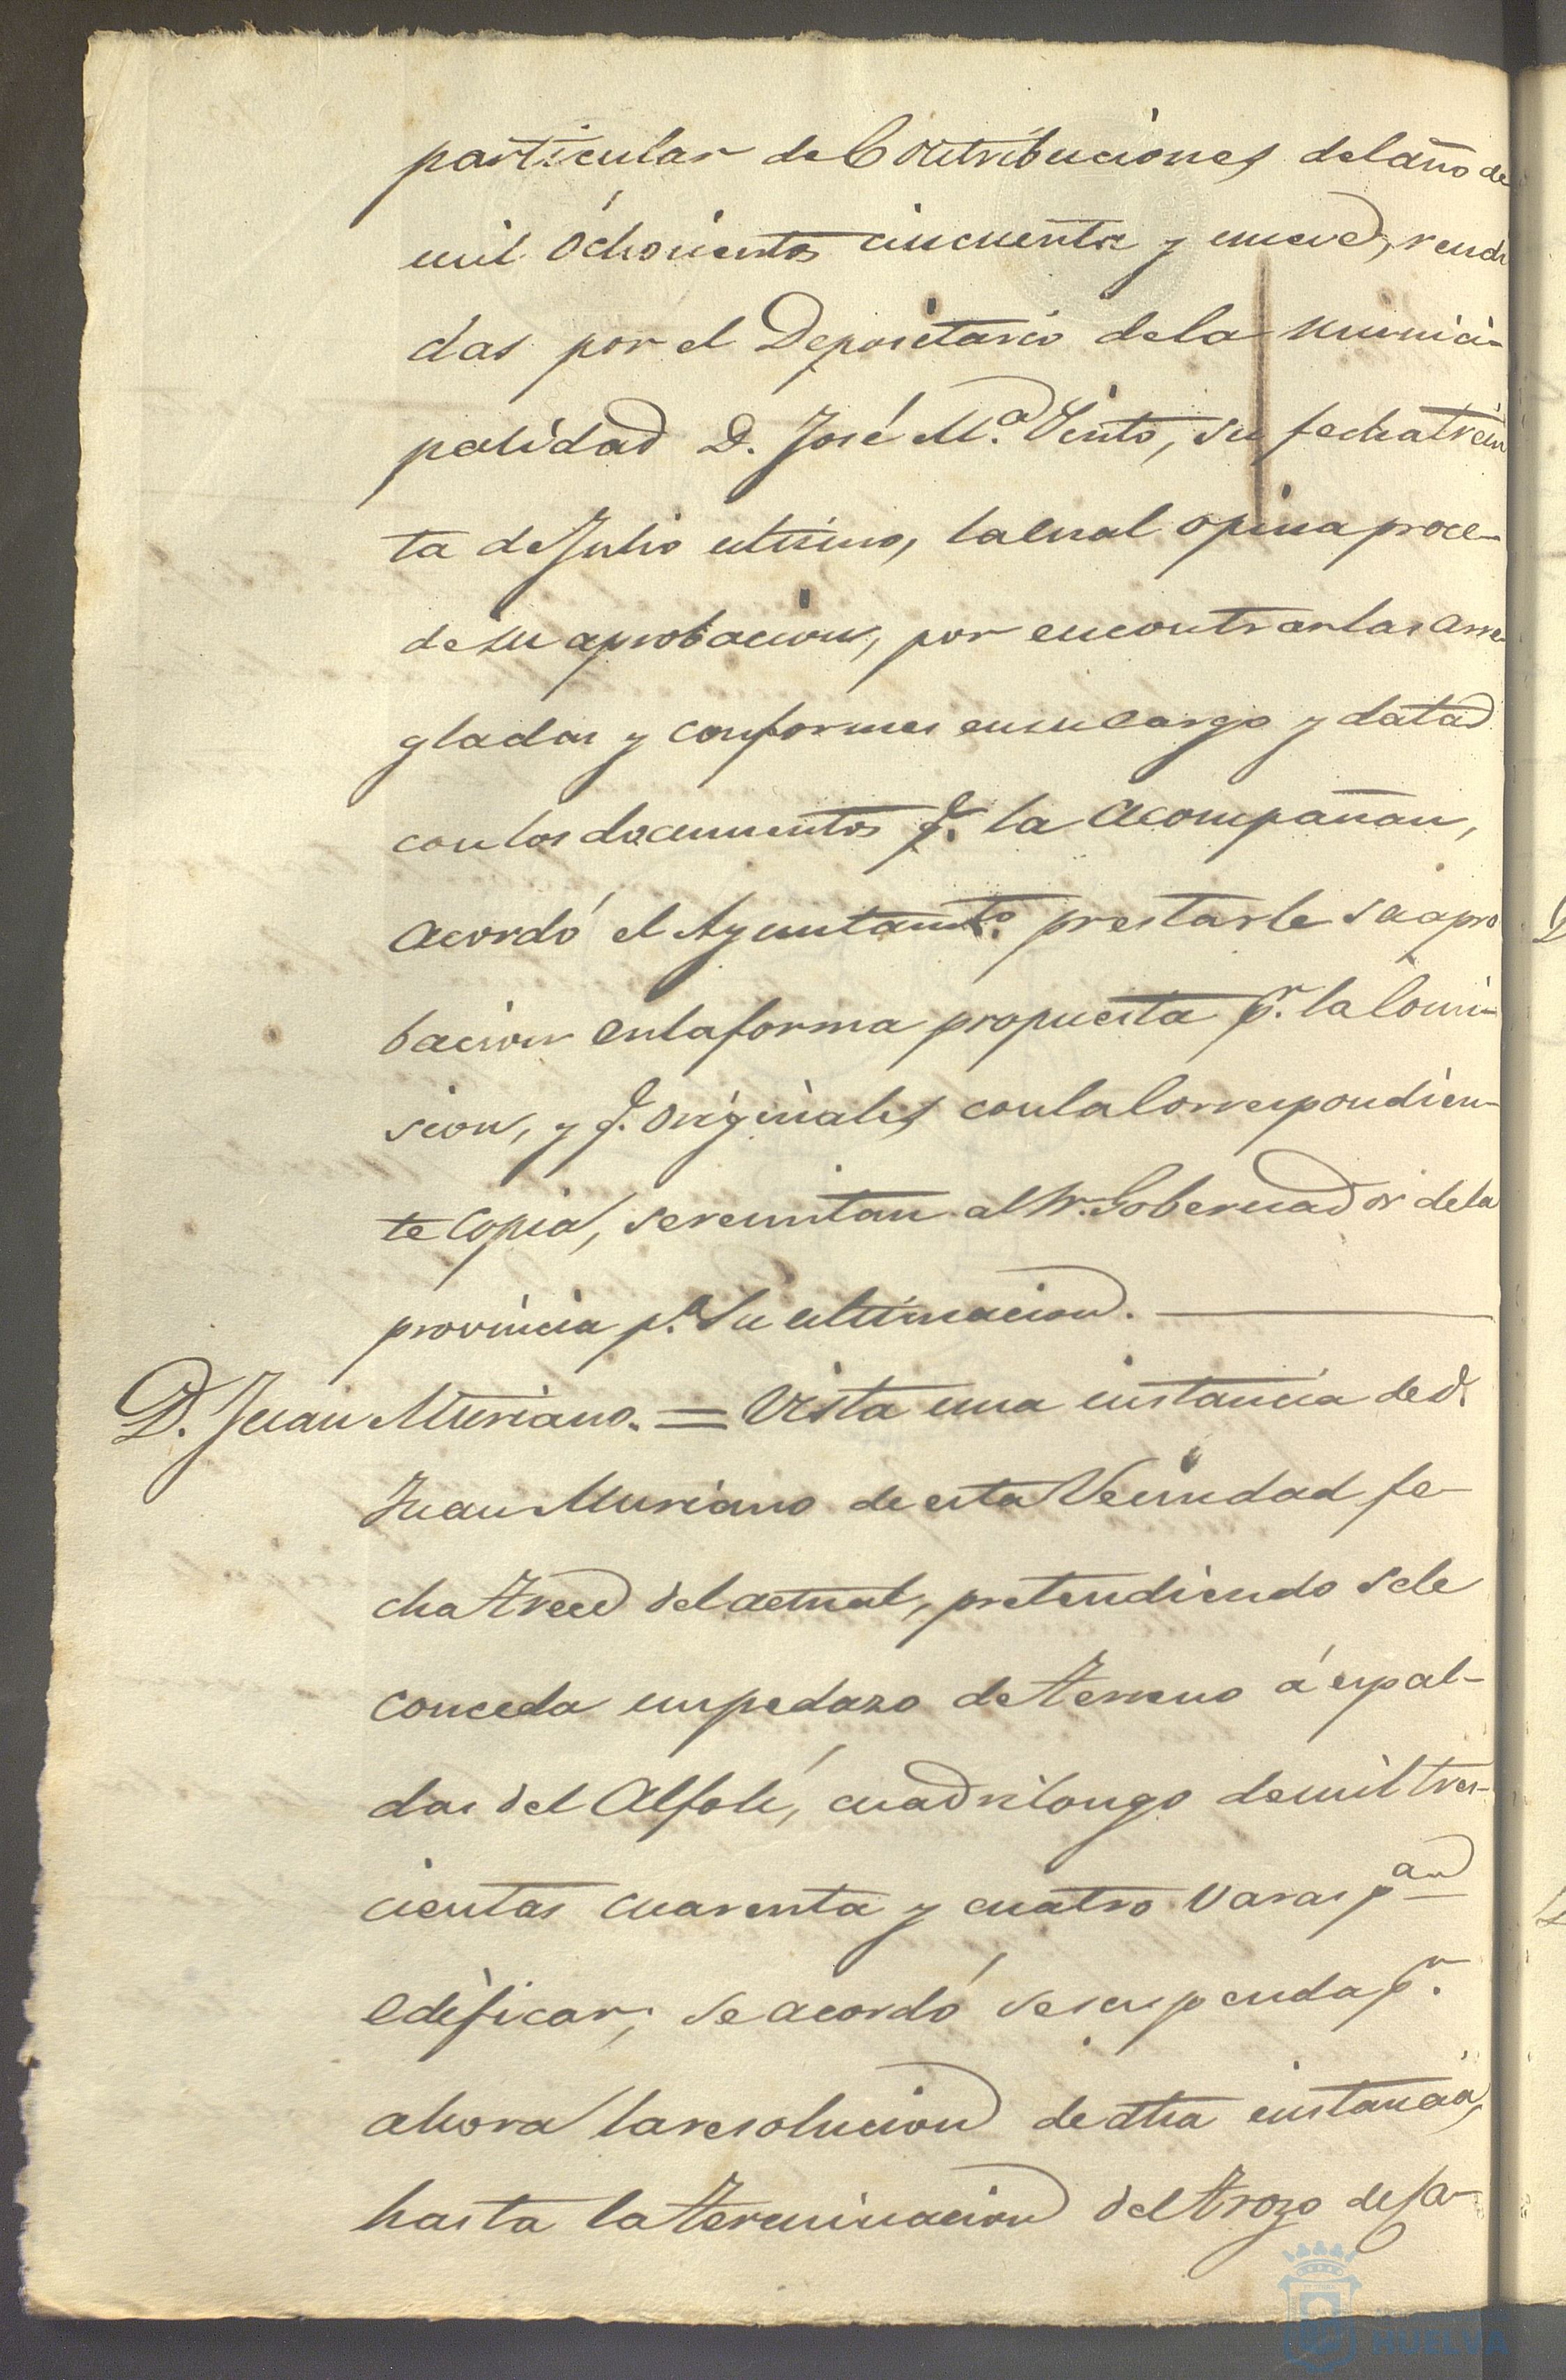 particular de Contribuciones del año de
mil ochocientos cincuenta y nueve, rendi
das por el Depositario de la munici-
palidad D. José M.ª Vinto, su fecha trein
ta de Julio ultimo, la cual opina proce-
de su aprobacion, por encontrarlas arre
gladas y conformes en su cargo y data
con los documentos q.e la acompañan,
acordó el Ayuntam.to prestarle su apro
bacion en la forma propuesta p.r la Comi-
sion, y q.e originales con la Correspondien-
te copia, se remitan al Sr. Gobernador de la
provincia p.a su ultimacion.
D. Juan Muriano. = Vista una instancia de D.
Juan Muriano de esta Vecindad fe-
cha trece del actual, pretendiendo se le
conceda un pedazo de terreno á espal-
das del Alfolí, cuadrilongo de mil tres-
cientas cuarenta y cuatro varas p.a
edificar; se acordó se suspenda p.r
ahora la resolucion de dha instancia,
hasta la terminacion del trozo de ca-
HUELVA